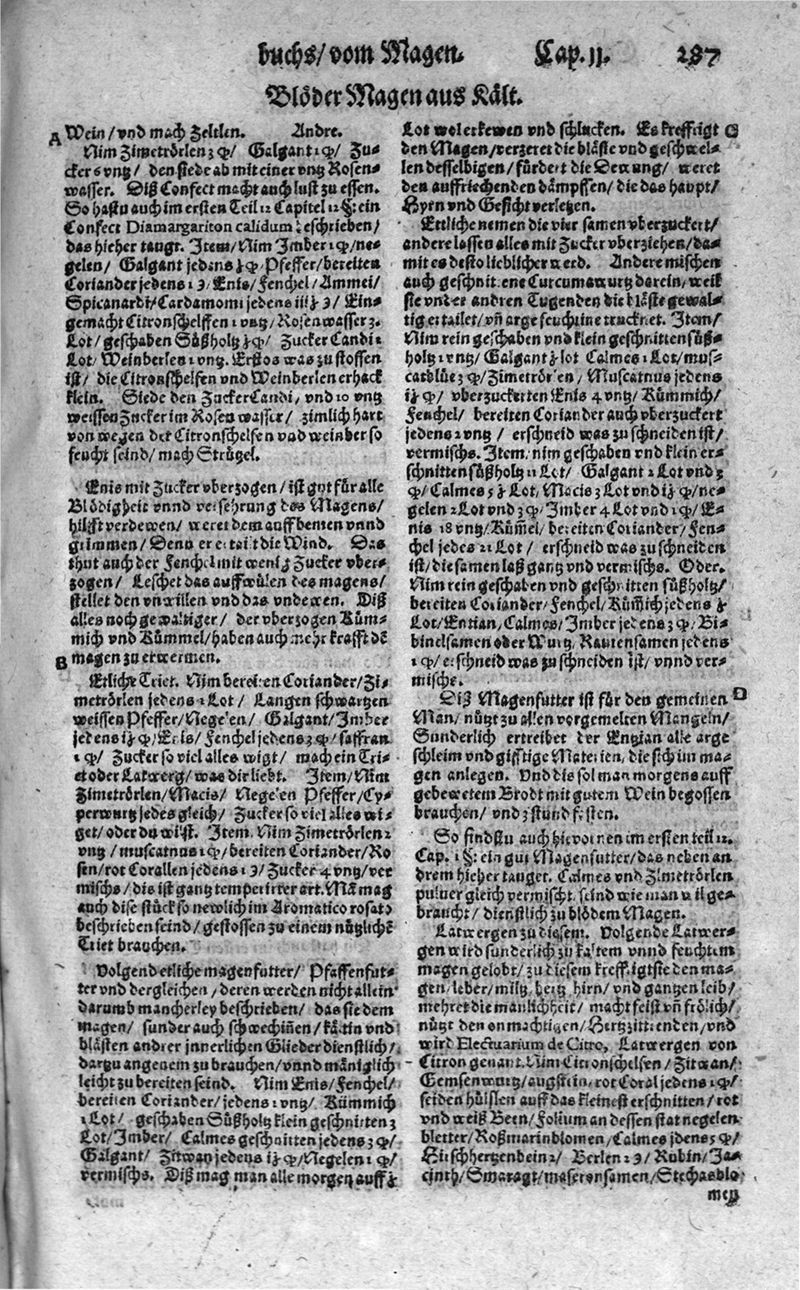 buchs/ vom Magen. Cap. 11. 287
Blöder Magen aus Kält.
A Wein/ vnd mach Zeltlen. Andre.
Nim Zimetrörlen 3 q/ Galgant 1 q/ Zu-
cker 8 vntz/ den siede ab mit einer vntz Rosen-
wasser. Diß Confect macht auch lust zu essen.
So hastu auch im ersten Teil 12 Capitel 12 §: ein
Confect Diamargariton calidum beschrieben/
das hieher taugt. Item/ Nim Imber 1 q/ ne-
gelen/ Galgant jedens ʒ q/ Pfeffer/ bereiten
Coriander jedens 1 ʒ/ Enis/ Fenchel/ Ammei/
Spicanardi/ Cardamomi jedens ʒ/ Ein-
gemacht Citronschelffen 1 vntz/ Rosenwasser 3.
Lot/ geschaben Süßholtz q/ Zucker Candi 1
Lot/ Weinberlen 1 vntz. Erstos was zu stossen
ist/ die Citronschelfen vnd Weinberlen erhack
klein. Siede den Zucker Candi/ vnd 10 vntz
weissen Zucker im Rosenwasser/ zimlich hart
von wegen der Citronschelfen vnd weinber so
feucht seind/ mach Strützel.
Enis mit Zucker vberzogen/ ist gut für alle
Blödigheit vnnd versehrung des Magens/
hilfft verdewen/ weret dem auffbemen vnnd
grimmen/ Denn er ertailt die Wind. Das
thut auch der Fenchel mit wenig Zucker vber-
zogen/ Leschet das auffwülen des magens/
stellet den vnwillen vnd das vndewen. Diß
alles noch gewaltiger/ der vberzogen Küm-
mich vnd Kümmel/ haben auch mehr krafft dē
B magen zu erwermen.
Etliche Triet. Nim bereiten Coriander/ Zi-
metrörlen jedens 1 Lot/ Langen schwartzen
weissen Pfeffer/ Negelen/ Galgant/ Imber
jedens q/ Enis/ Fenchel jedens 3 q/ saffran
1 q/ Zucker so viel alles wigt/ mach ein Tri-
et oder Latwerg/ was dir liebt. Item/ Nim
Zimetrörlen/ Macis/ Negelen Pfeffer/ Cy-
perwurtz jedes gleich/ Zucker so viel alles wi-
get/ oder du wilt. Item. Nim Zimetrörlen 2
vntz/ muscatnus 1 q/ bereiten Coriander/ Ro-
sen/ rot Corallen jedens 1 ʒ/ Zucker 4 vntz/ ver-
mischs/ dis ist gantz temperirter art. Mā mag
auch dise stück so newlich im Aromatico rosato
beschrieben seind/ gestossen zu einem nützlichē
Triet brauchen.
Volgend etliche magenfutter/ Pfaffenfut-
ter vnd dergleichen/ deren werden nicht allein
darumb mancherley beschrieben/ das sie dem
magen/ sunder auch schwechinēn/ kältin vnd
blästen andrer innerlichen Glieder dienstlich/
darzu angenem zu brauchen/ vnnd mäniglich
leicht zu bereiten seind. Nim Enis/ Fenchel/
bereiten Coriander/ jedens 1 vntz/ Kümmich
1 Lot/ geschaben Süßholtz klein geschnitten 3
Lot/ Imber/ Calmes geschnitten jedens 3 q/
Galgant/ Zitwan jedens q/ Negelen 1 q/
vermischs. Diß mag man alle morgen auff
Lot wol erkewen vnd schlucken. Es krefftigt C
den Magen/ verzeret die bläste vnd geschwel-
len desselbigen/ fürdert die Dewung/ weret
den auffriechenden dämpffen/ die das haupt/
Hyrn vnd Gesicht verletzen.
Ettliche nemen die vier samen vberzuckert/
andere lassen alles mit Zucker vberziehen/ da-
mit es desto lieblicher werd. Andere mischen
auch geschnittene Curcumawurtz darein/ weil
sie vnder andren Tugenden die bläste gewal-
tig ertailet/ vñ arge feuchtine trucknet. Item/
Nim rein geschaben vnd klein geschnitten süß-
holtz 1 vntz/ Galgant lot Calmes 1 Lot/ mus-
catblüe 3 q/ Zimetrörlen/ Muscatnus jedens
q/ vberzuckerten Enis 4 vntz/ Kümmich/
Fenchel/ bereiten Coriander auch vberzuckert
jedens 2 vntz/ erschneid was zu schneiden ist/
vermischs. Item/ nim geschaben vnd klein er-
schnitten süßholtz 12 Lot/ Galgant 2 Lot vnd 3
q/ Calmes 5 Lot/ Macis 3 Lot vnd q/ ne-
gelen 2 Lot vnd 3 q/ Imber 4 Lot vnd 1 q/ E-
nis 18 vntz/ Küm̄el/ bereiten Coriander/ Fen-
chel jedes 21 Lot/ erschneid was zu schneiden
ist/ die samen laß gantz vnd vermischs. Oder.
Nim rein geschaben vnd geschnitten süßholtz/
bereiten Coriander/ Fenchel/ Küm̄ich jedens
Lot/ Entian/ Calmes/ Imber jedens 3 q/ Bi-
binelsamen oder Wurtz/ Rautensamen jedens
1 q/ erschneid was zu schneiden ist/ vnnd ver-
mischs.
Diß Magenfutter ist für den gemeinen D
Man/ nützt zu allen vorgemelten Mangeln/
Sunderlich ertreibet der Entzian alle arge
schleim vnd gifftige Materien/ die sich im ma-
gen anlegen. Vnd dis sol man morgens auff
gebewetem Brodt mit gutem Wein begossen
brauchen/ vnd 3 stund fasten.
So findstu auch hievornen im ersten teil 12.
Cap. 1 §: ein gut Magenfutter/ das neben an
drem hieher tauget. Calmes vnd Zimetrörlen
puluer gleich vermischt/ seind wie man wil ge-
braucht/ dienstlich zu blödem Magen.
Latwergen zu diesem. Volgende Latwer-
gen wird sunderlich zu kaltem vnnd feuchtem
magen gelobt/ zu diesem krefftigt sie den ma-
gen/ leber/ miltz/ hertz/ hirn/ vnd gantzen leib/
mehret die manlichheit/ macht feist vñ frölich/
nützt den onmachtigen/ Hertzzittrenden/ vnd
wird Electuarium de Citro, Latwergen von
Citron genant. Nim Citronschelfen/ Zitwan/
Gemsenwurtz/ augstein/ rot Coral jedens 1 q/
seiden hülsen auff das kleinest erschnitten/ rot
vnd weiß Been/ Folium an dessen stat negelen
bletter/ Roßmarinblomen/ Calmes jdens 5 q/
Hirschhertzenbein 2/ Berlen 2 ʒ/ Rubin/ Ja-
cinth/ Smaragt/ maseronsamen/ Stechasblo
men